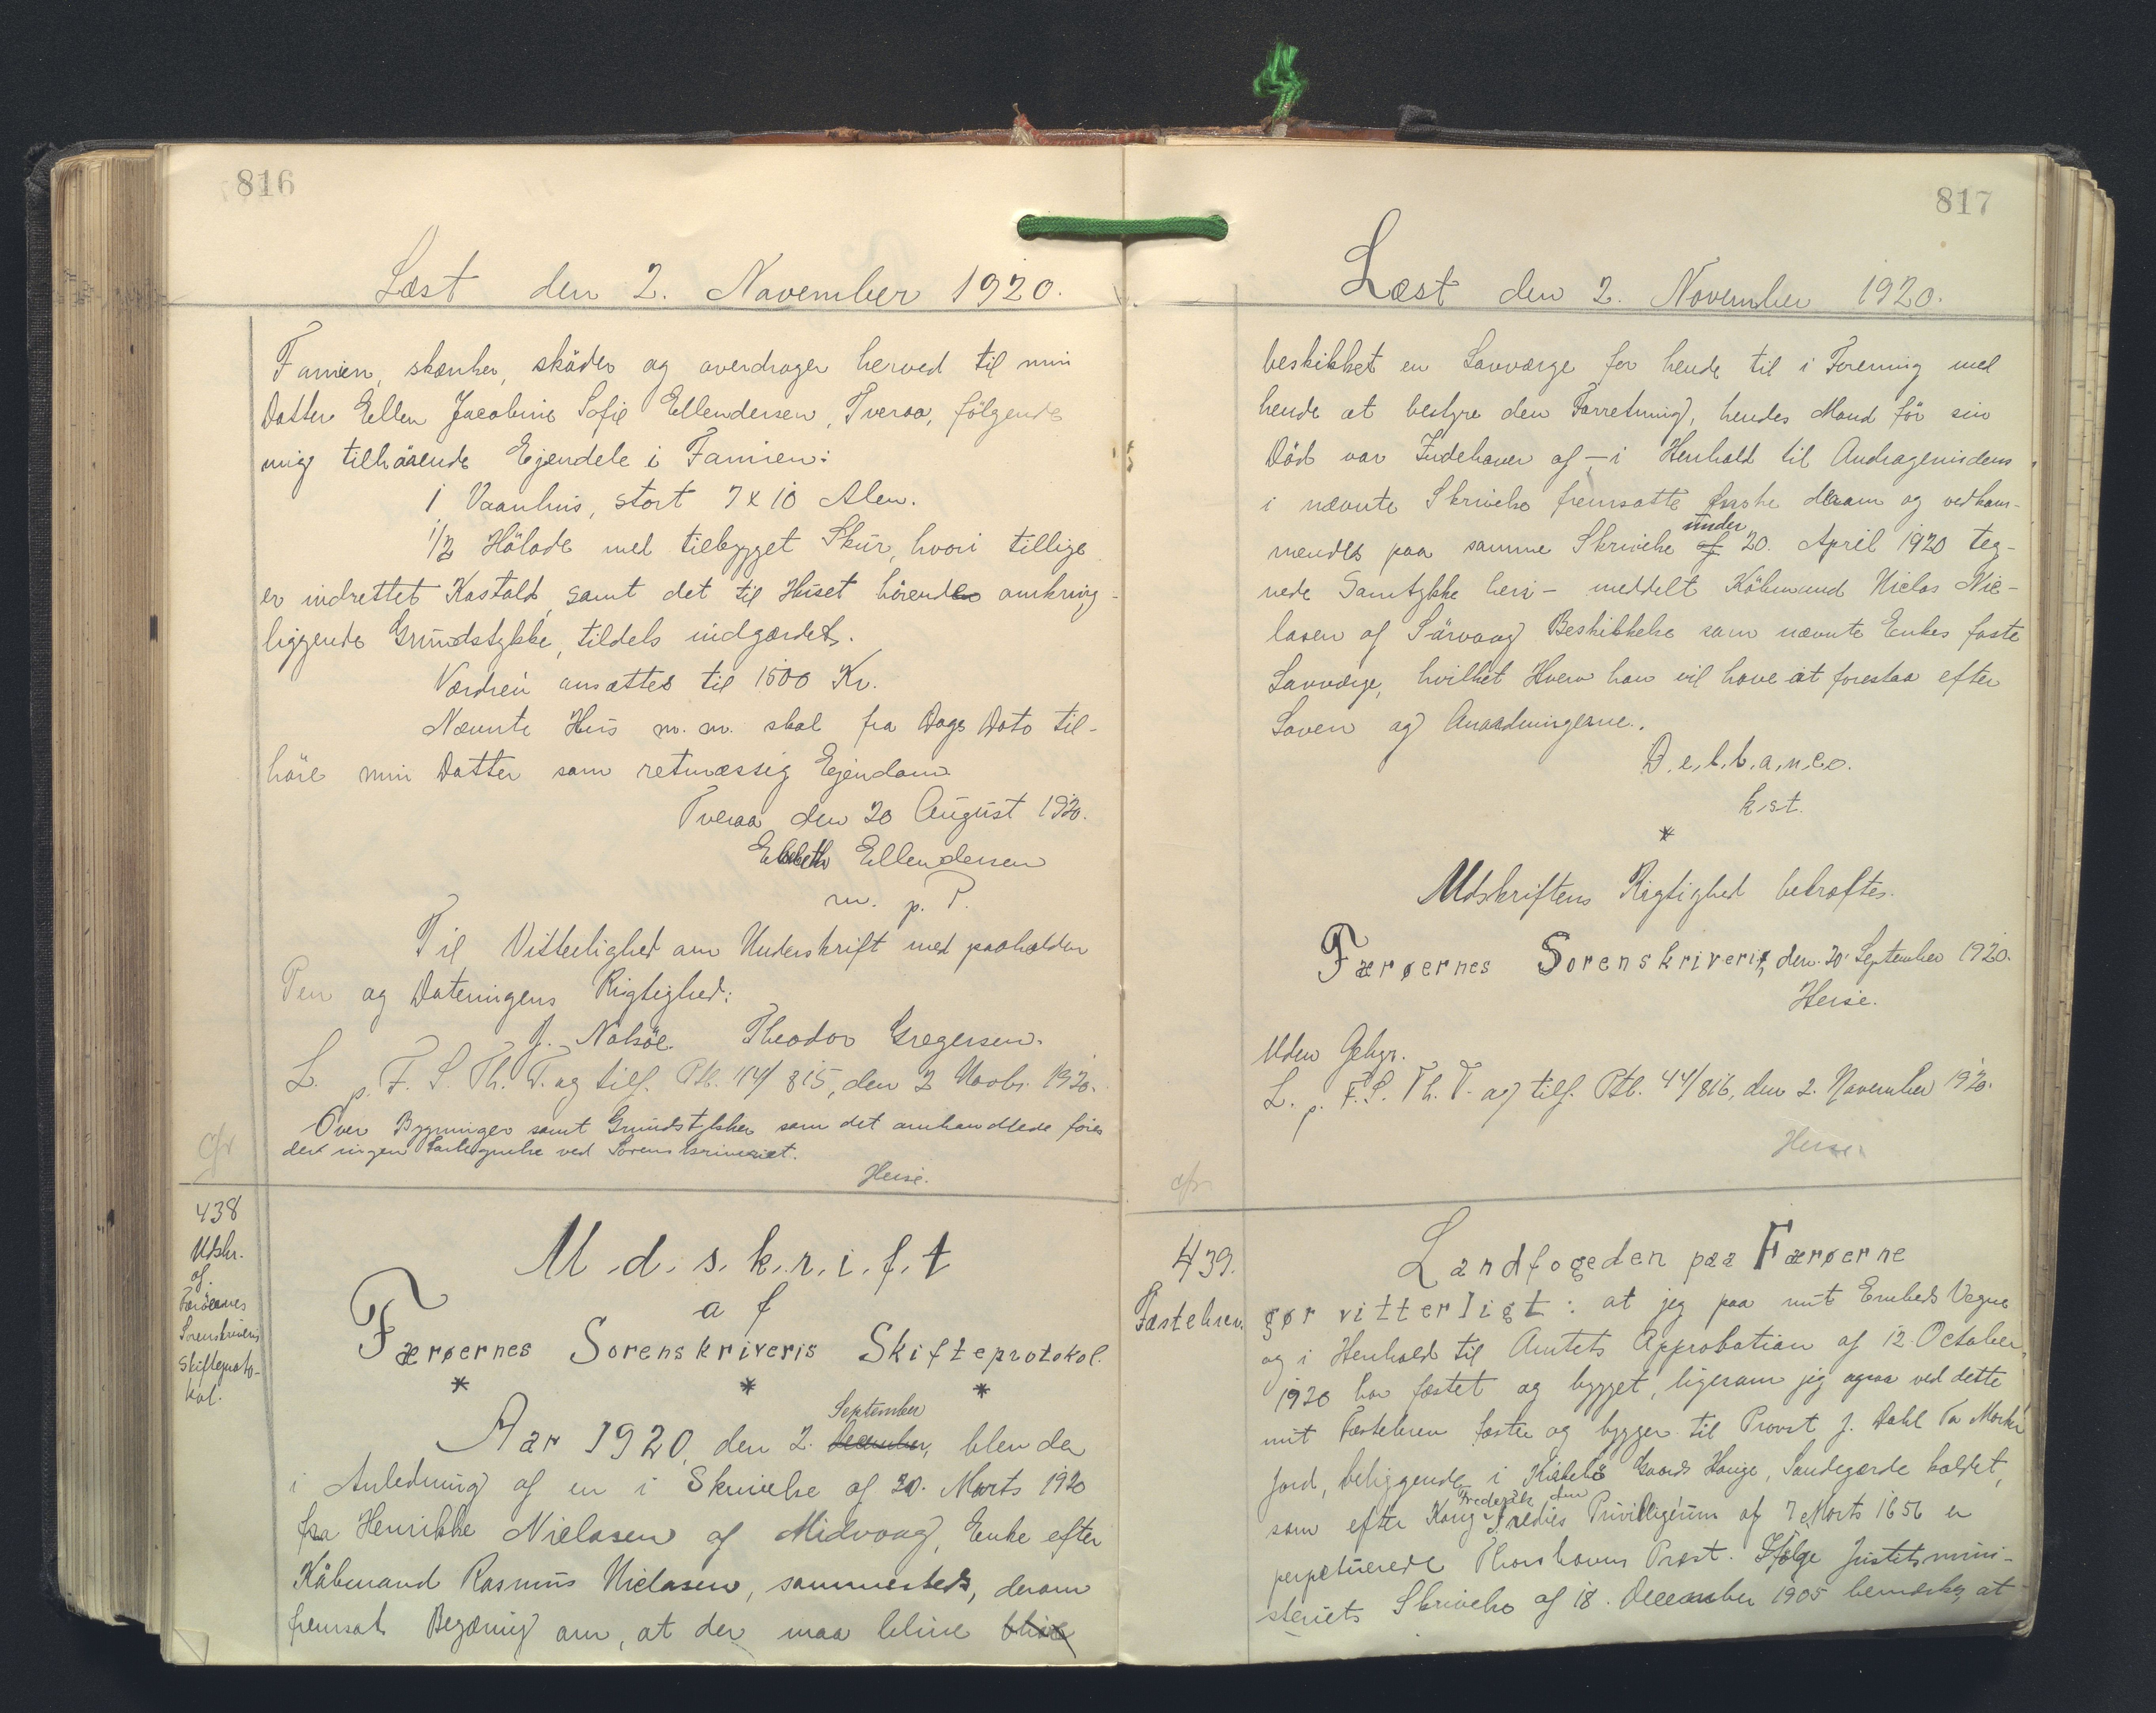 816
Læst den 2. November 1920.
Famien, skænker, skøder og overdrager herved til min
Datter Ellen Jacobine Sofie Ellendersen, Tveraa, følgende
mig tilhørende Ejendele i Famien:
1 Vaanhus, stort 7 x 10 Alen.
1/2 Hølade med tilbygget Skur, hvori tillige
er indrettet Kostald, samt det til Huset hørende omkring-
liggende Grundstykke, tildels indgærdet.
Værdien ansættes til 1500 Kr.
Nævnte Hus m. m. skal fra Dags Dato til-
høre min Datter som retmæssig Ejendom.
Tveraa den 20 August 1920.
Elsebeth Ellendersen
m. p. P.
Til Vitterlighed om Underskrift med paaholden
Pen og Dateringens Rigtighed:
J. Nolsøe. Theodor Gregersen.
L. p. F. S. Th. T. og tilf. Ptl. 44/815, den 2 Novbr. 1920.
Over Bygninger samt Grundstykker som det omhandlede føres
der ingen Fortegnelse ved Sorenskriveriet.
Heise.
cfr
438
Udskr.
af.
Færöernes
Sorenskriveris
Skifteproto-
kol.
U.d.s.k.r.i.f.t
af
Færøernes Sorenskriveris Skifteprotokol.
* * *
September
Aar 1920, den 2. December, blev der
i Anledning af en i Skrivelse af 30. Marts 1920
fra Henrikke Nielasen af Midvaag, Enke efter
Købmand Rasmus Niclasen, sammesteds, derom
fremsat Begæring om, at der maa blive blive
817
Læst den 2. November 1920.
beskikket en Lavværge for hende til i Forening med
hende at bestyre den Forretning, hendes Mand før sin
Död var Indehaver af – i Henhold til Andragerindens
i nævnte Skrivelse fremsatte Ønske derom og vedkom-
under
mendes paa samme Skrivelse af 20. April 1920 teg-
nede Samtykke heri – meddelt Købmand Niclas Nic-
lasen af Sørvaag Beskikkelse som nævnte Enkes faste
Lavværge, hvilket Hverv han vil have at forestaa efter
Loven og Anordningerne.
D.e.l.b.a.n.c.o.
kst.
*
Udskriftens Rigtighed bekræftes.
Færøernes Sorenskriveri, den 30 September 1920.
Heise.
Uden Gebyr.
L. p. F. S. Th. T. og tilf. Ptl. 44/816, den 2. November 1920.
Heise.
cfr
439.
Fæstebrev.
Landfogeden paa Færøerne
gør vitterligt: at jeg paa mit Embeds Vegne
og i Henhold til Amtets Approbation af 12 October
1920 har fæstet og bygget, ligesom jeg ogsaa ved dette
mit Fæstebrev fæster og bygger til Provst J. Dahl To Marker
Jord, beliggende i Kirkebø Gaards Hauge, Sandegærde kaldet,
Frederik den
som efter Kong Tredies Privilegium af 7 Marts 1656 er
perpetuerede Thorshavns Præst. Ifølge Justitsmini-
steriets Skrivelse af 18. December 1905 bemærkes, at